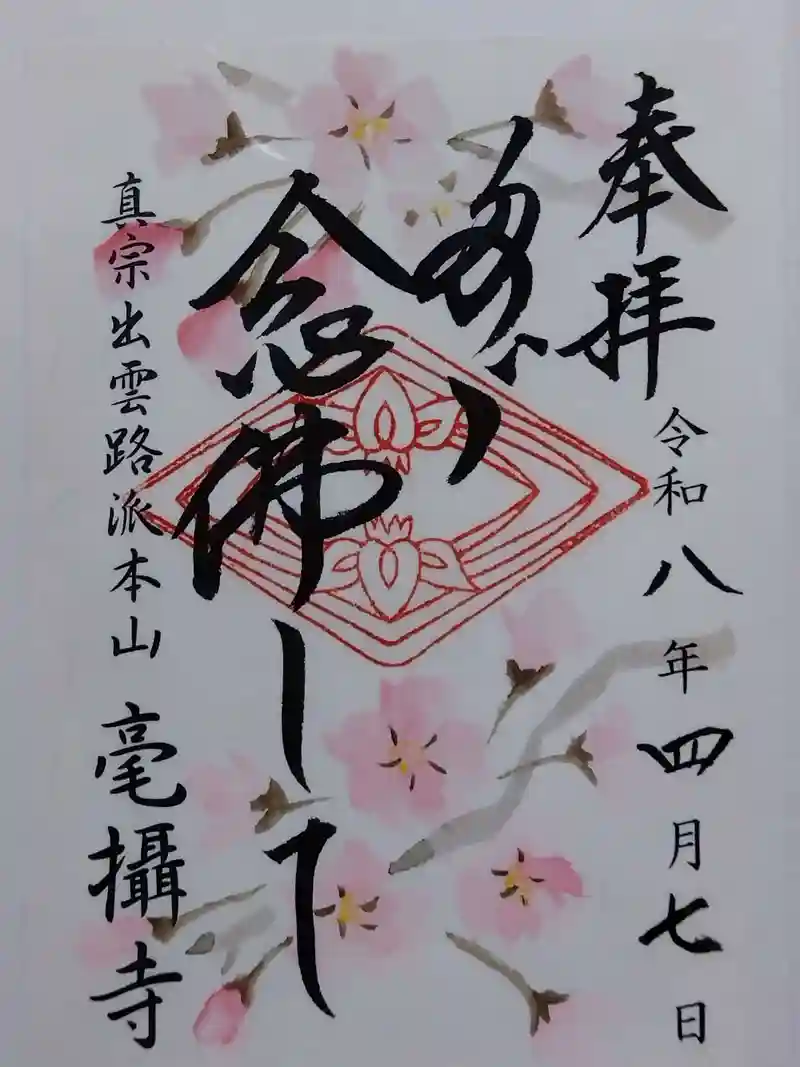 奉拝
令和八年四月七日
念佛して
真宗出雲路派本山 毫攝寺